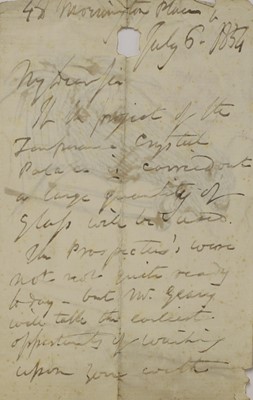 42 Mornington Place
July 6. 1854
My dear Sir
If the project of the
Temperance Crystal
Palace is carried out
a large quantity of
Glass will be used.
The Prospectus's were
not quite ready
to day - but Mr. Geary
will take the earliest
opportunity of waiting
upon you with